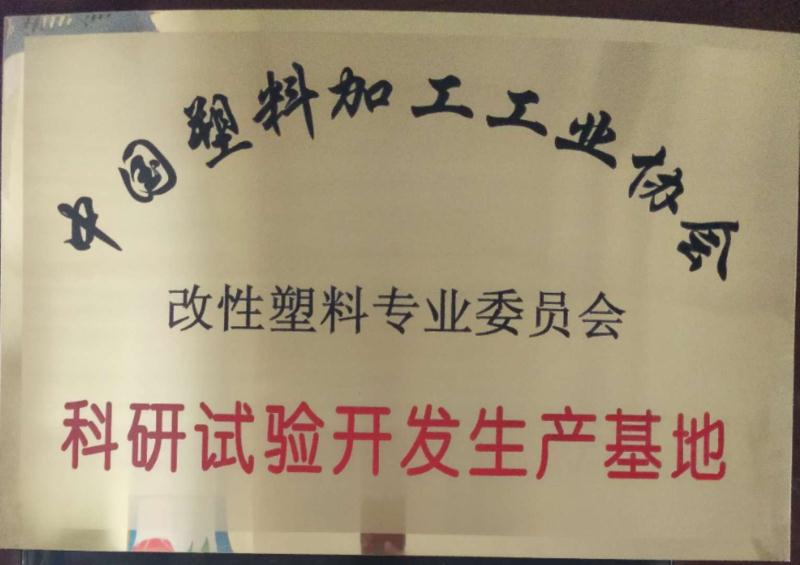 中国塑料加工工业协会
改性塑料专业委员会
科研试验开发生产基地